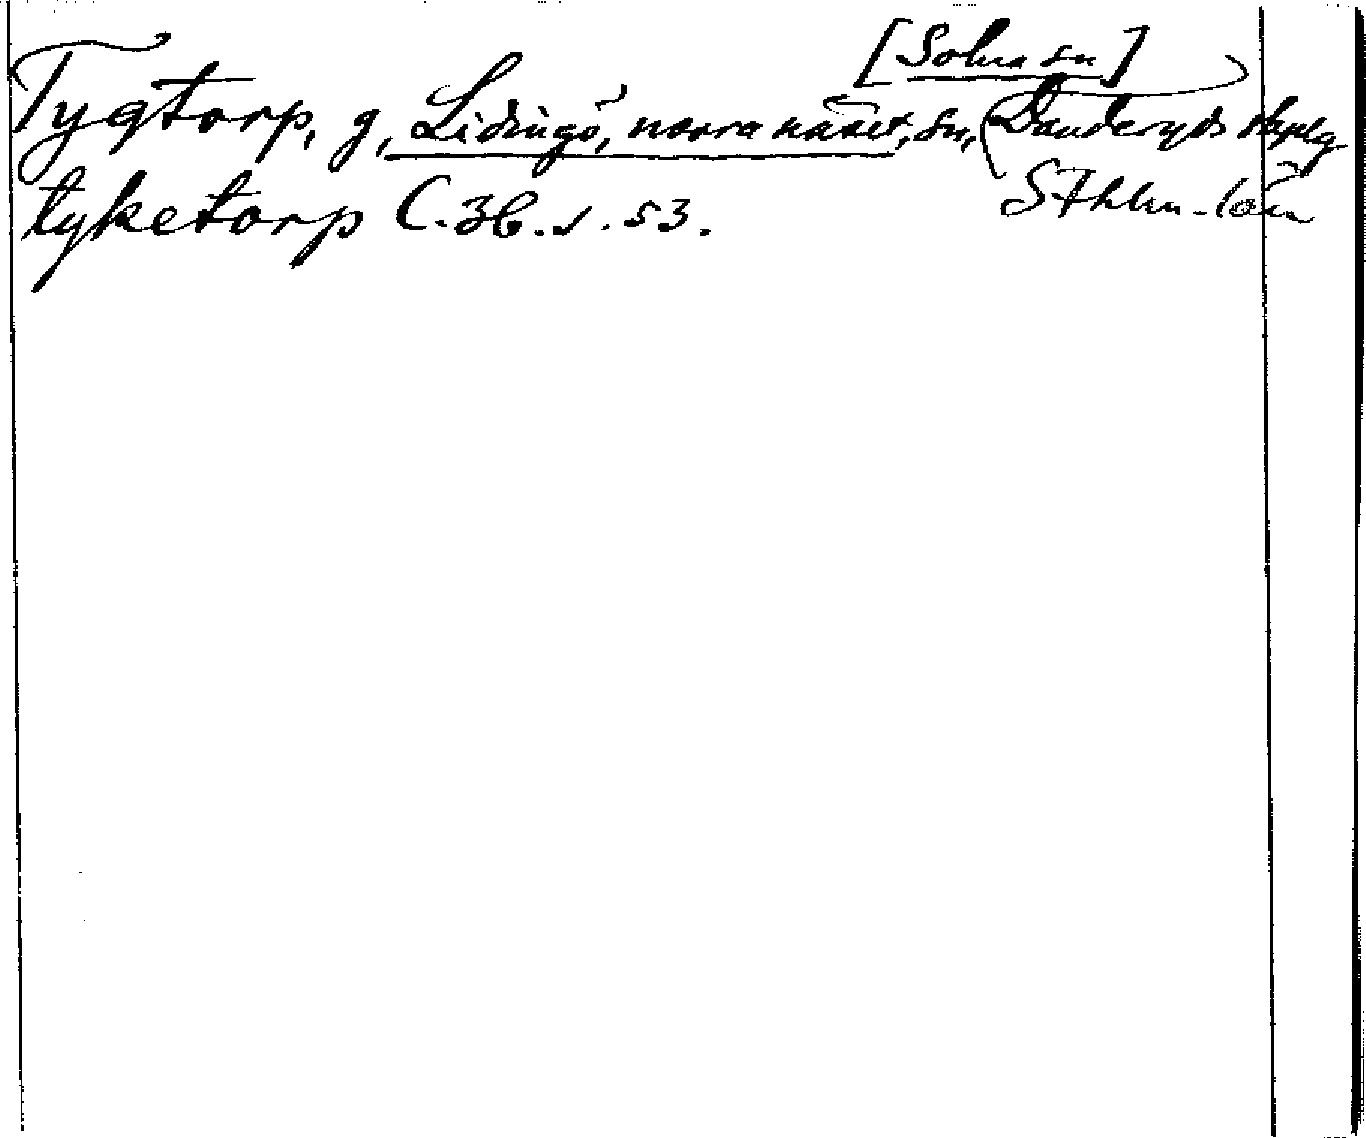 [Solna sn]
Tygtorp, g, Lidingö, norra näset, sn, (Danderyds skplg
Sthlm-län
tyketorp C.36.s.53.